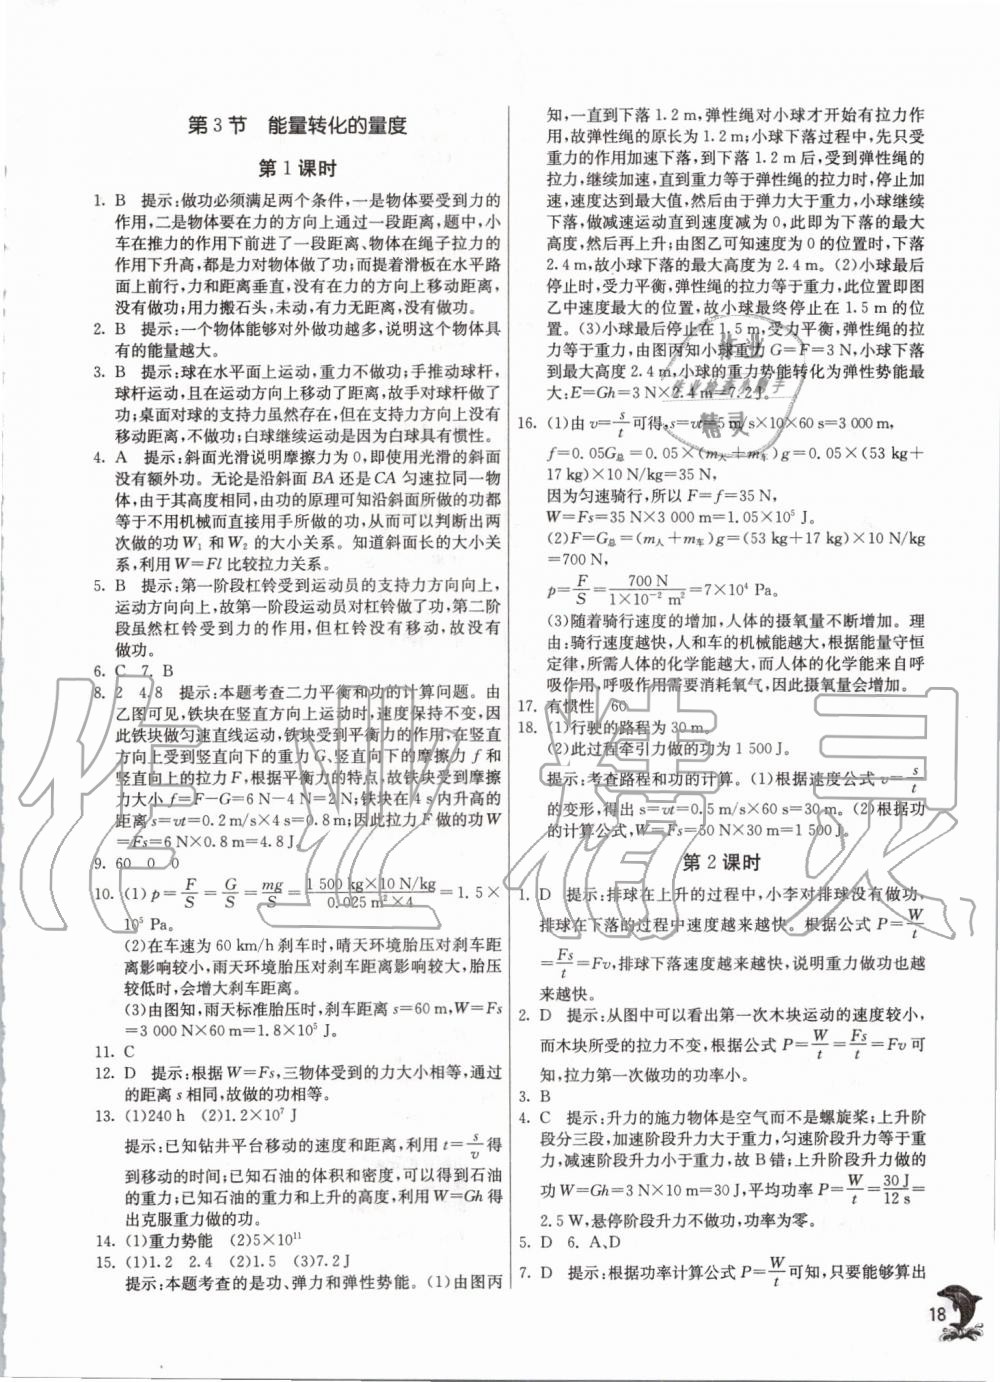 第3节 能量转化的量度
第1课时
1. B 提示:做功必须满足两个条件,一是物体要受到力的
作用,二是物体要在力的方向上通过一段距离,题中,小
车在推力的作用下前进了一段距离、物体在绳子拉力的
作用下升高,都是力对物体做了功;而提着滑板在水平路
面上前行,力和距离垂直,没有在力的方向上移动距离,
没有做功;用力搬石头,未动,有力无距离,没有做功。
2. B 提示:一个物体能够对外做功越多,说明这个物体具
有的能量越大。
3. B 提示:球在水平面上运动,重力不做功;手推动球杆,
球杆运动,且在运动方向上移动了距离,故手对球杆做了
功;桌面对球的支持力虽然存在,但在支持力方向上没有
移动距离,不做功;白球继续运动是因为白球具有惯性。
4. A 提示:斜面光滑说明摩擦力为0,即使用光滑的斜面
没有额外功。无论是沿斜面BA还是CA匀速拉同一物
体,由于其高度相同,由功的原理可知沿斜面所做的功都
等于不用机械而直接用手所做的功,从而可以判断出两
次做的功W₁和W₂的大小关系。知道斜面长的大小关
系,利用W=Fl比较拉力关系。
5. B 提示:第一阶段杠铃受到运动员的支持力方向向上,
运动方向向上,故第一阶段运动员对杠铃做了功,第二阶
段虽然杠铃受到力的作用,但杠铃没有移动,故没有
做功。
6. C 7. B
8. 2 4.8 提示:本题考查二力平衡和功的计算问题。由
乙图可见,铁块在竖直方向上运动时,速度保持不变,因
此铁块做匀速直线运动,铁块受到平衡力的作用,在竖直
方向上受到竖直向下的重力G、竖直向下的摩擦力f和
竖直向上的拉力F,根据平衡力的特点,故铁块受到摩擦
力大小f=F-G=6 N-4 N=2 N;铁块在4 s内升高的
距离s=vt=0.2 m/s×4 s=0.8 m;因此拉力F做的功W
=Fs=6 N×0.8 m=4.8 J。
9. 60 0 0
10. (1)p=F/S=G/S=mg/S=1 500 kg×10 N/kg/0.025 m²×4=1.5×
10⁵ Pa。
(2)在车速为60 km/h刹车时,晴天环境胎压对刹车距
离影响较小,雨天环境胎压对刹车距离影响较大,胎压
较低时,会增大刹车距离。
(3)由图知,雨天标准胎压时,刹车距离s=60 m,W=Fs
=3 000 N×60 m=1.8×10⁵ J。
11. C
12. D 提示:根据W=Fs,三物体受到的力大小相等,通过
的距离s相同,故做的功相等。
13. (1)240 h (2)1.2×10⁷ J
提示:已知钻井平台移动的速度和距离,利用t=s/v得
到移动的时间;已知石油的体积和密度,可以得到石油
的重力;已知石油的重力和上升的高度,利用W=Gh得
出克服重力做的功。
14. (1)重力势能 (2)5×10¹¹
15. (1)1.2 2.4 (2)1.5 (3)7.2 J
提示:本题考查的是功、弹力和弹性势能。(1)由图丙
知,一直到下落1.2 m,弹性绳对小球才开始有拉力作
用,故弹性绳的原长为1.2 m;小球下落过程中,先只受
重力的作用加速下落,到下落1.2 m后,受到弹性绳的
拉力,继续加速,直到重力等于弹性绳的拉力时,停止加
速,速度达到最大值,然后由于弹力大于重力,小球继续
下落,做减速运动直到速度减为0,此即为下落的最大
高度,然后再上升;由图乙可知速度为0的位置时,下落
2.4 m,故小球下落的最大高度为2.4 m。(2)小球最后
停止时,受力平衡,弹性绳的拉力等于重力,此位置即图
乙中速度最大的位置,故小球最终停止在1.5 m的位
置。(3)小球最后停止在1.5 m,受力平衡,弹性绳的拉
力等于重力,由图丙知小球重力G=F=3 N,小球下落
到最大高度2.4 m,小球的重力势能转化为弹性势能最
大:E=Gh=3 N×2.4 m=7.2 J。
16. (1)由v=s/t可得,s=vt=5 m/s×10×60 s=3 000 m,
f=0.05G总=0.05×(m人+m车)g=0.05×(53 kg+
17 kg)×10 N/kg=35 N,
因为匀速骑行,所以F=f=35 N,
W=Fs=35 N×3 000 m=1.05×10⁵ J。
(2)F=G总=(m人+m车)g=(53 kg+17 kg)×10 N/kg
=700 N,
p=F/S=700 N/1×10⁻² m²=7×10⁴ Pa。
(3)随着骑行速度的增加,人体的摄氧量不断增加。理
由:骑行速度越快,人和车的机械能越大,根据能量守恒
定律,所需人体的化学能越大,而人体的化学能来自呼
吸作用,呼吸作用需要消耗氧气,因此摄氧量会增加。
17. 有惯性 60
18. (1)行驶的路程为30 m。
(2)此过程牵引力做的功为1 500 J。
提示:考查路程和功的计算。(1)根据速度公式v=s/t
的变形,得出s=vt=0.5 m/s×60 s=30 m。(2)根据功
的计算公式,W=Fs=50 N×30 m=1 500 J。
第2课时
1. D 提示:排球在上升的过程中,小李对排球没有做功,
排球在下落的过程中速度越来越快。根据公式P=W/t
=Fs/t=Fv,排球下落速度越来越快,说明重力做功也越
来越快。
2. D 提示:从图中可以看出第一次木块运动的速度较小,
而木块所受的拉力不变,根据公式P=W/t=Fs/t=Fv可
知,拉力第一次做功的功率小。
3. B
4. C 提示:升力的施力物体是空气而不是螺旋桨;上升阶
段分三段,加速阶段升力大于重力,匀速阶段升力等于重
力,减速阶段升力小于重力,故B错;上升阶段升力做的
功W=Gh=3 N×10 m=30 J,平均功率P=W/t=30 J/12 s=
2.5 W,悬停阶段升力不做功,功率为零。
5. D 6. A、D
7. D 提示:根据功率计算公式P=W/t可知,只要能够算出
18
作业精灵